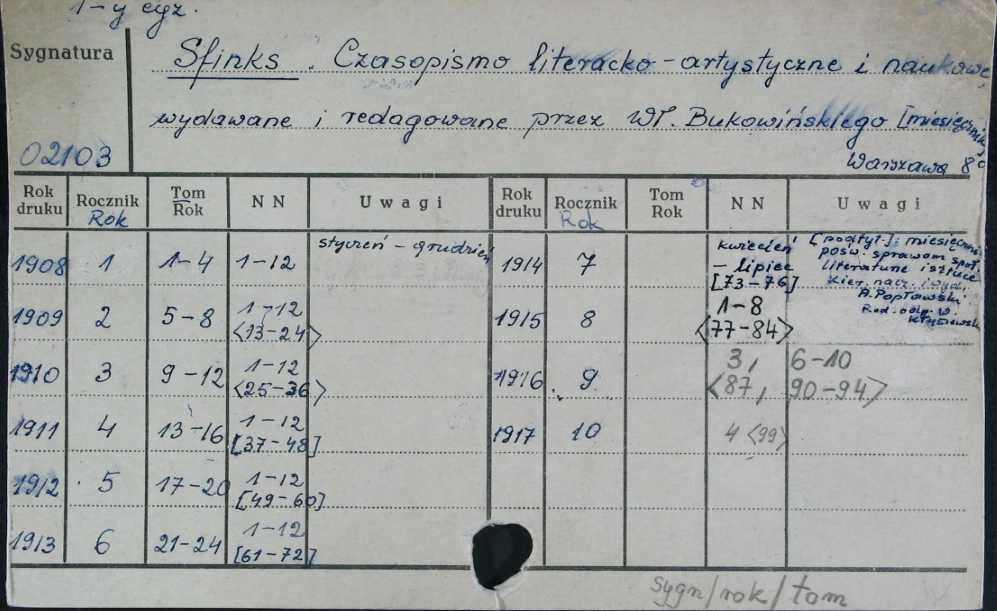 1-y egz.
Sygnatura
Sfinks. Czasopismo literacko-artystyczne i naukowe,
wydawane i redagowane przez Wł. Bukowińskiego [miesięcznik]
02103 Warszawa 8°
Rok druku Rocznik Rok Tom Rok NN Uwagi Rok druku Rocznik Rok Tom Rok NN Uwagi
1908 1 1-4 1-12 styczeń - grudzień 1914 7 kwiecień - lipiec [73-76] [podtyt.]: miesięcznik
pośw. sprawom społ.
literaturze i sztuce
kier. nacz. i wyd.
A. Popławski
Red. odp. W.
1909 2 5-8 1-12 <13-24> 1915 8 1-8 <77-84>
1910 3 9-12 1-12 <25-36> 1916 9 3, 6-10 <87, 90-94>
1911 4 13-16 1-12 [37-48] 1917 10 4 <99>
1912 5 17-20 1-12 [49-60]
1913 6 21-24 1-12 [61-72]
sygn/rok/tom